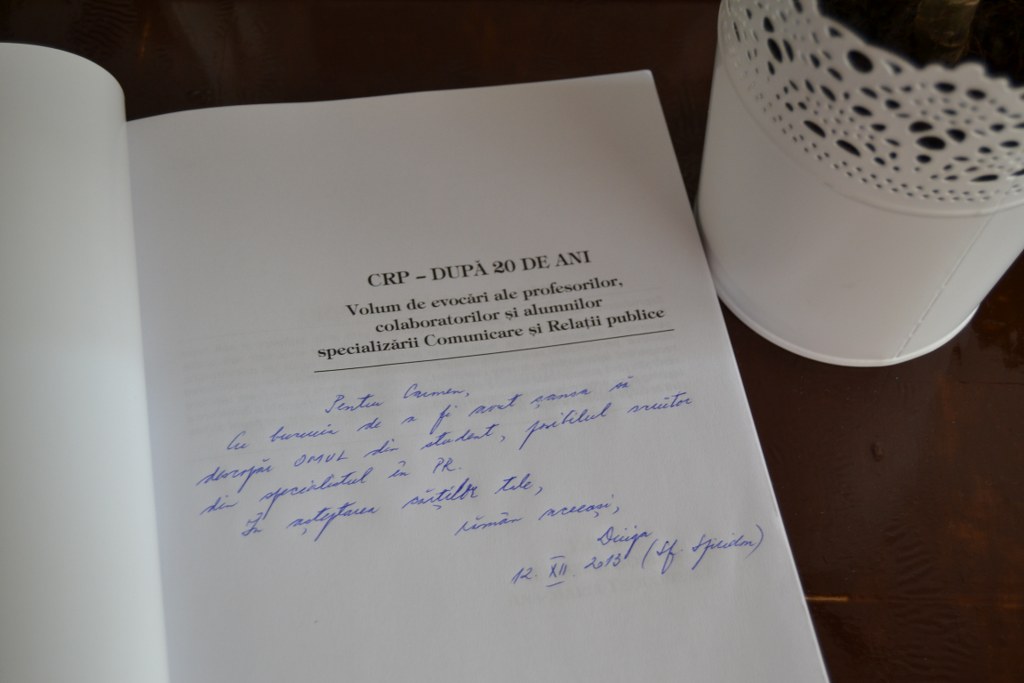 CRP – DUPĂ 20 DE ANI
Volum de evocări ale profesorilor,
colaboratorilor și alumnilor
specializării Comunicare și Relații publice
Pentru Carmen,
Cu bucuria de a fi avut șansa să
descopăr OMUL din student, scriitor
din specialistul în PR.
În așteptarea cărților tale,
rămân aceeași,
Diriga
12. XII. 2013 (Sf. Spiridon)